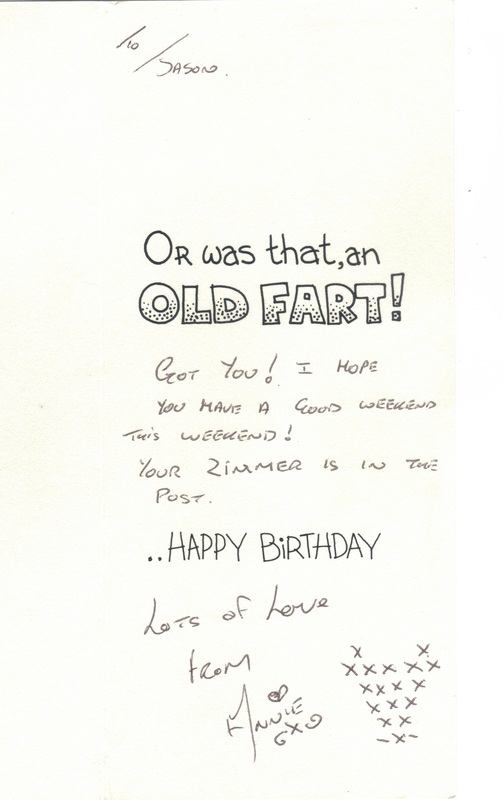 To
Jason.
Or was that, an
OLD FART!
GOT YOU! I HOPE
YOU HAVE A GOOD WEEKEND
THIS WEEKEND!
YOUR ZIMMER IS IN THE
POST.
..HAPPY BIRTHDAY
Lots of Love
from
ANNIE
x x
x x x x x
x x x x
x x x
x x
-x-